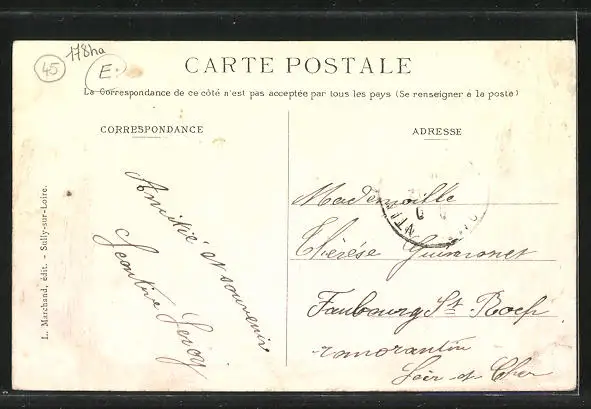 45
178ha
E.
CARTE POSTALE
La Correspondance de ce côté n'est pas acceptée par tous les pays (Se renseigner a la poste)
CORRESPONDANCE
Amitié et souvenir
Leroy
L. Marchand, édit. - Sully-sur-Loire.
ADRESSE
Mademoiselle
Thérèse
Faubourg St Roch
romorantin
Loir et Cher